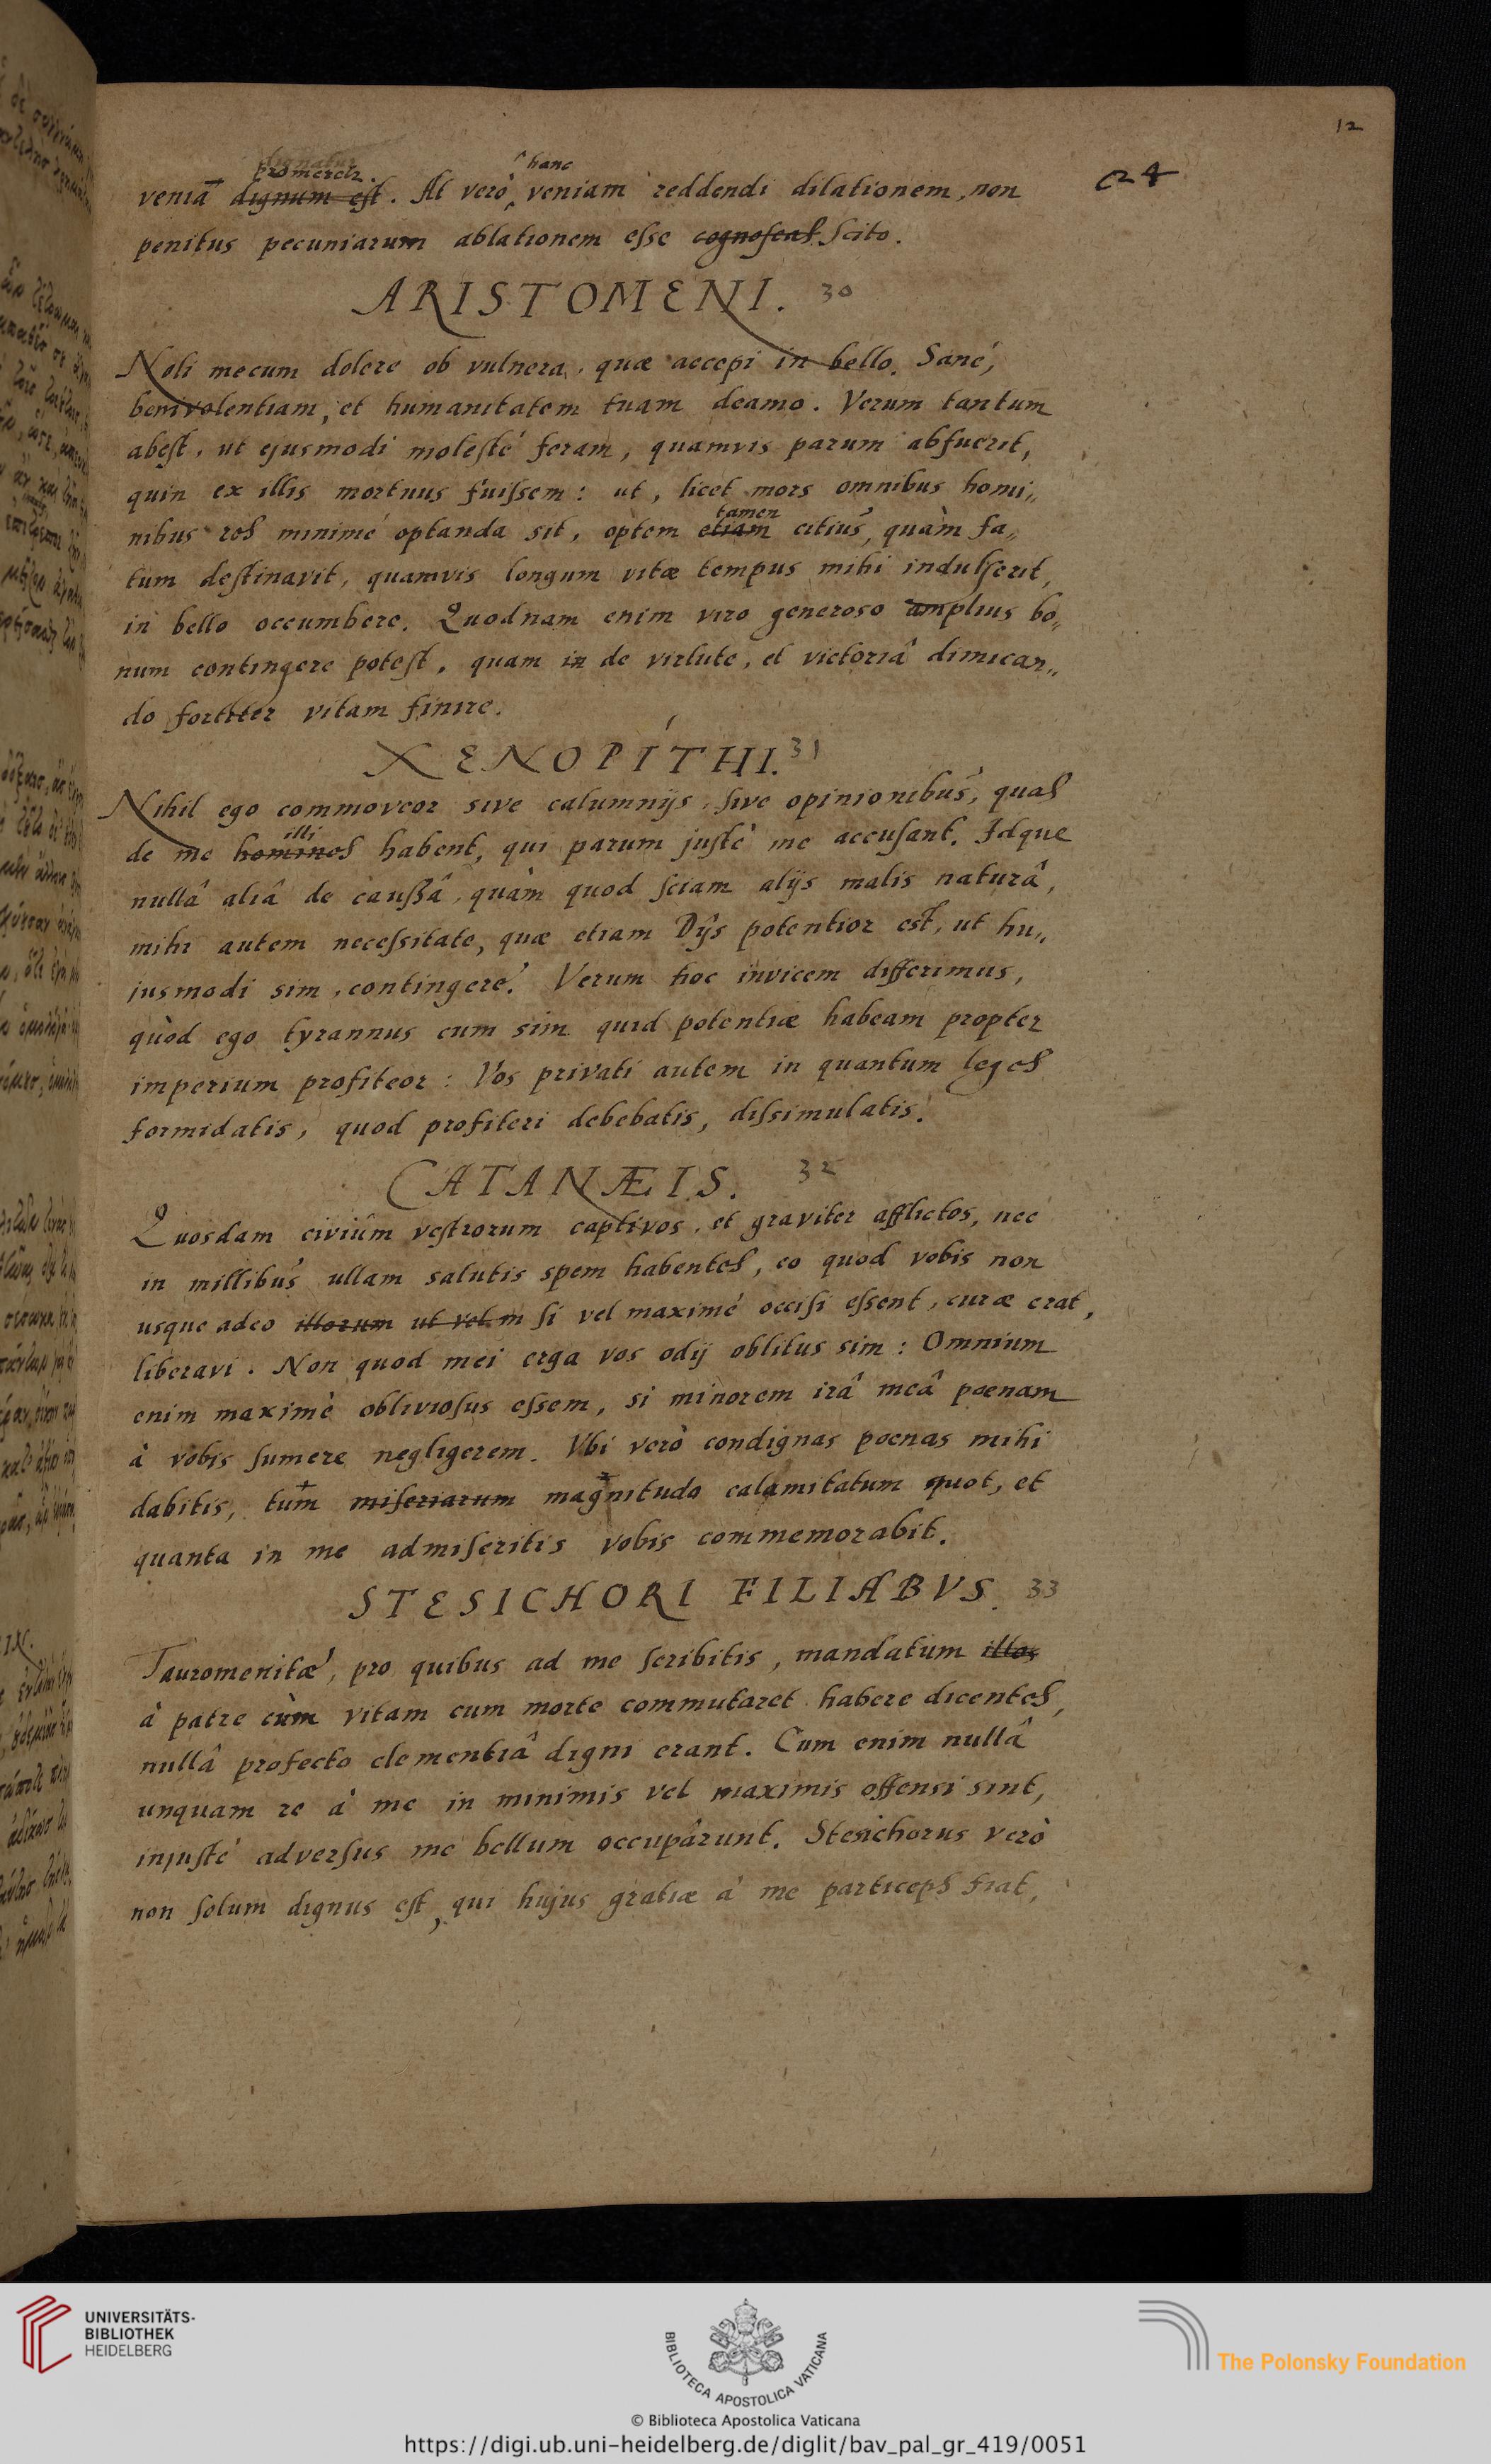 12
24
dignatur
promeretr. hanc
veniā dignum est. At verò, veniam reddendi dilationem, non
penitus pecuniarum ablationem esse cognoscas. Scito.
ARISTOMENI. 30
Noli mecum dolere ob vulnera, quæ accepi in bello. Sanè,
benivolentiam, et humanitatem tuam deamo. Verum tantum
abest, ut ejusmodi molestè feram, quamvis parum abfuerit,
quin ex illis mortuus fuissem: ut, licet mors omnibus homi„
tamen
nibus res minimè optanda sit, optem etiam citius, quàm fa„
tum destinavit, quamvis longum vitæ tempus mihi indulserit,
in bello occumbere. Quodnam enim viro generoso amplius bo„
num contingere potest, quam in de virtute, et victoriâ dimican„
do fortiter vitam finire.
XENOPITHI. 31
Nihil ego commoveor sive calumnijs, sive opinionibus, quas
illi
de me homines habent, qui parum justè me accusant. Idque
nullâ aliâ de caussâ, quàm quod sciam alijs malis naturâ,
mihi autem necessitate, quæ etiam Dijs potentior est, ut hu„
jusmodi sim, contingere. Verum hoc invicem differimus,
quòd ego tyrannus cum sim quid potentiæ habeam propter
imperium profiteor: Vos privati autem in quantum leges
formidatis, quod profiteri debebatis, dissimulatis.
CATANÆIS. 32
Quosdam civiûm vestrorum captivos, et graviter afflictos, nec
in millibus ullam salutis spem habentes, eo quod vobis non
usque adeo illorum ut vel m si vel maximè occisi essent, curæ erat,
liberavi. Non quod mei erga vos odij oblitus sim: Omnium
enim maximè obliviosus essem, si minorem irâ meâ poenam
à vobis sumere negligerem. Vbi verò condignas poenas mihi
dabitis, tum miseriarum magnitudo calamitatum quot, et
quanta in me admiseritis vobis commemorabit.
STESICHORI FILIABVS. 33
Tauromenitæ, pro quibus ad me scribitis, mandatum illos
à patre cùm vitam cum morte commutaret habere dicentes,
nullâ profecto clementiâ digni erant. Cum enim nullâ
unquam re à me in minimis vel maximis offensi sint,
injustè adversus me bellum occupârunt. Stesichorus verò
non solum dignus est, qui hujus gratiæ à me particeps fiat,
UNIVERSITÄTS-
BIBLIOTHEK
HEIDELBERG
BIBLIOTECA APOSTOLICA VATICANA
The Polonsky Foundation
© Biblioteca Apostolica Vaticana
https://digi.ub.uni-heidelberg.de/diglit/bav_pal_gr_419/0051